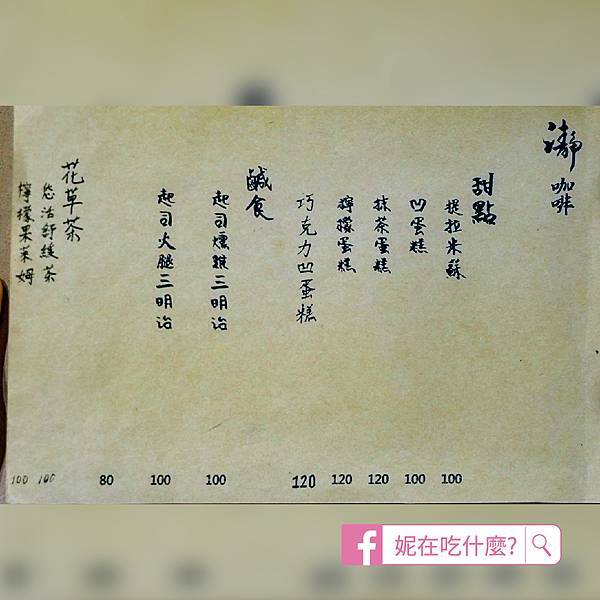 瀞咖啡
甜點
提拉米蘇 100
凹蛋糕 100
抹茶蛋糕 120
檸檬蛋糕 120
巧克力凹蛋糕 120
鹹食
起司燻雞三明治 100
起司火腿三明治 100
80
花草茶
悠活舒緩茶 100
檸檬果萊姆 100
妮在吃什麼?